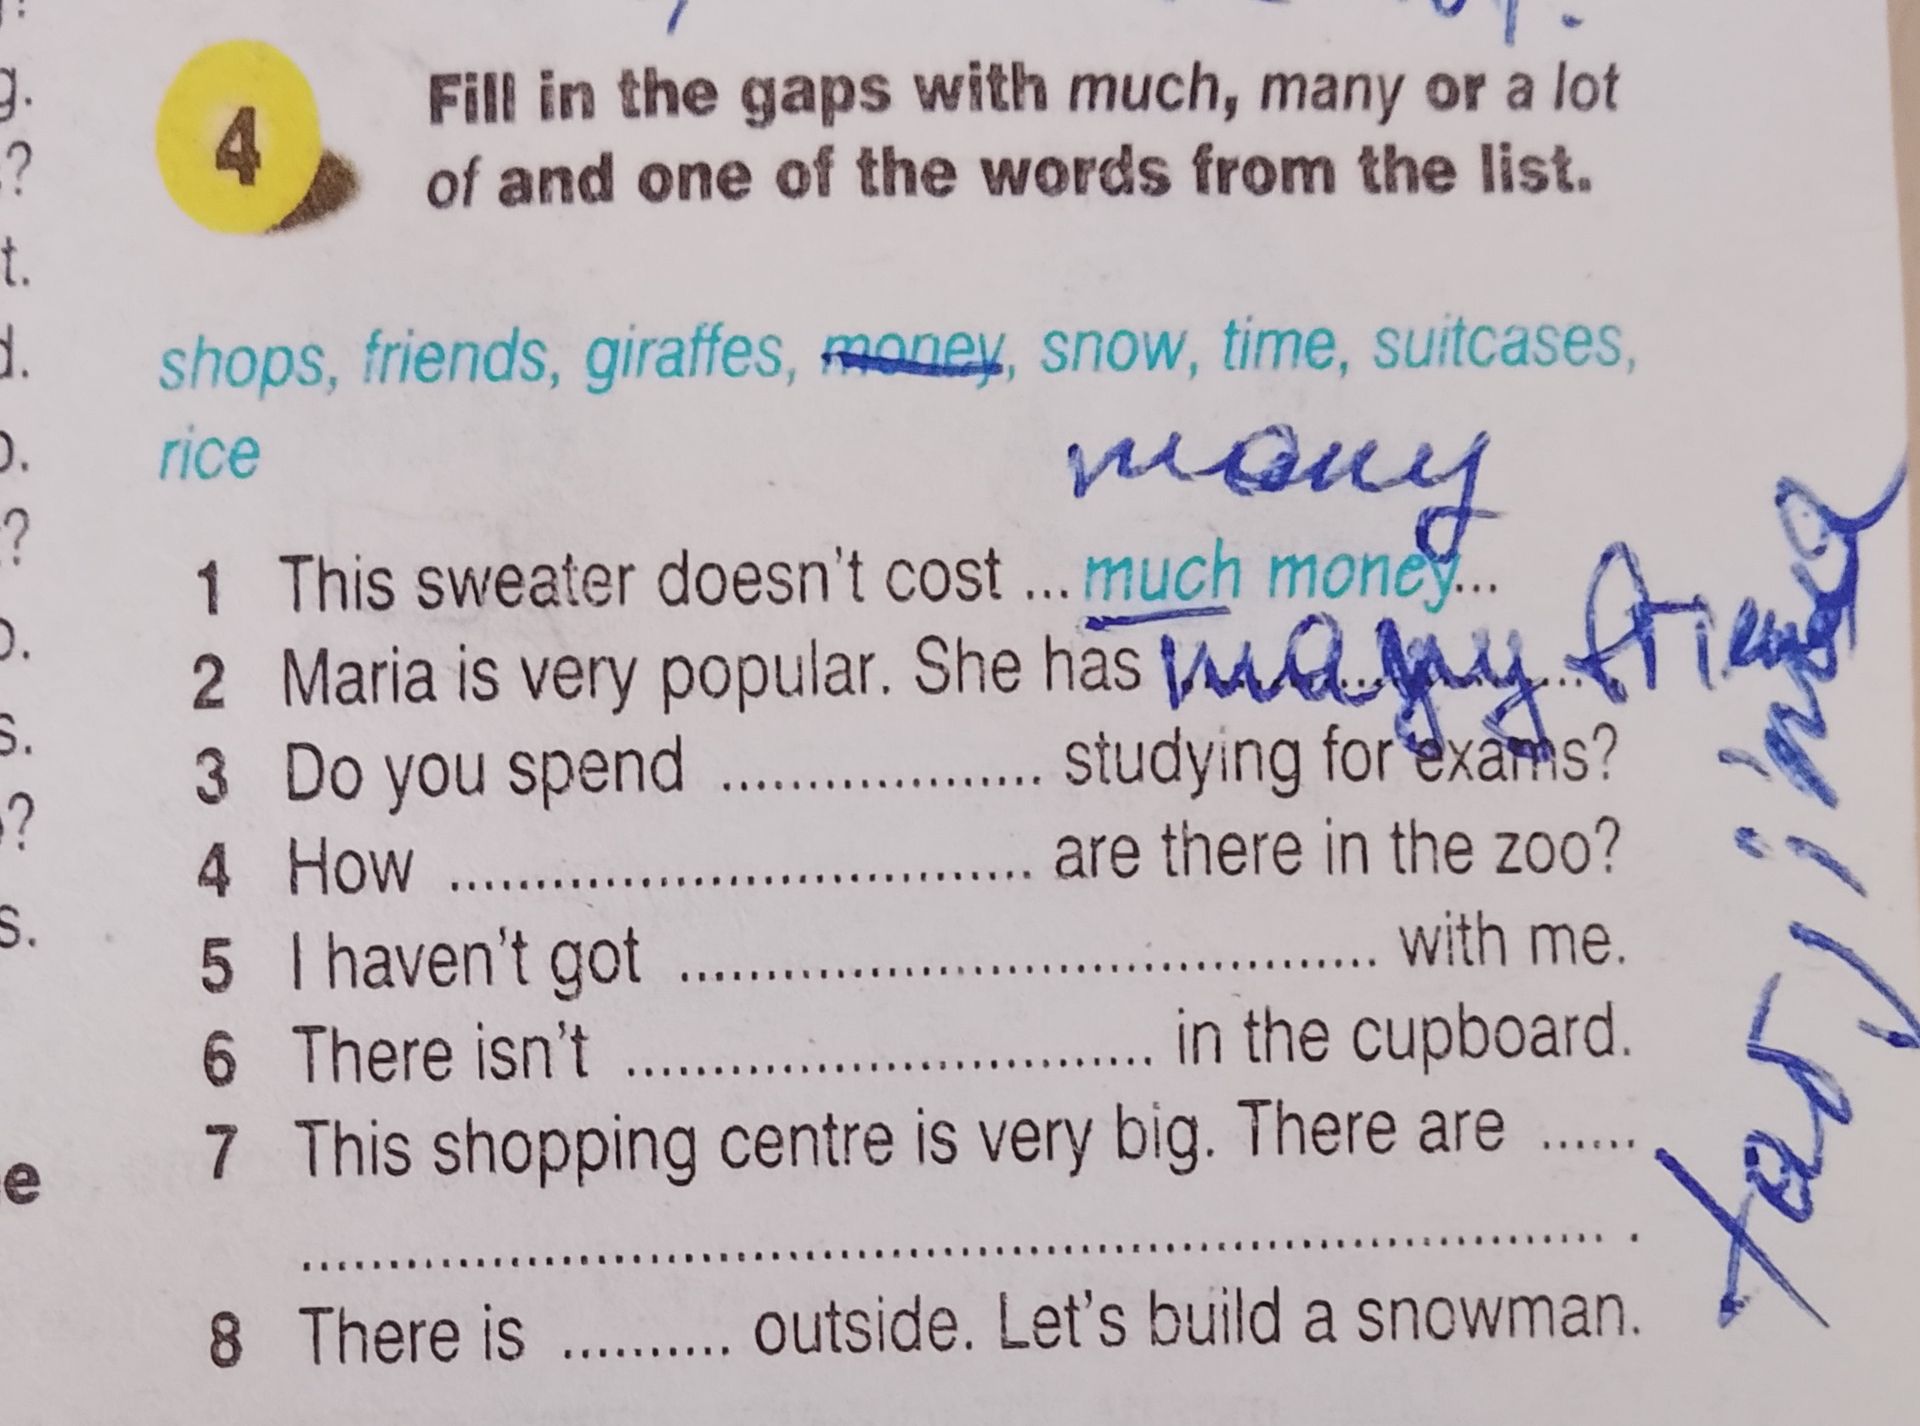 4 Fill in the gaps with much, many or a lot
of and one of the words from the list.
shops, friends, giraffes, money, snow, time, suitcases,
rice
many
1 This sweater doesn't cost ... much money...
2 Maria is very popular. She has many friends
3 Do you spend .................... studying for exams?
4 How .................................... are there in the zoo?
5 I haven't got ........................................... with me.
6 There isn't ................................. in the cupboard.
7 This shopping centre is very big. There are ......
................................................................................ .
8 There is .......... outside. Let's build a snowman.